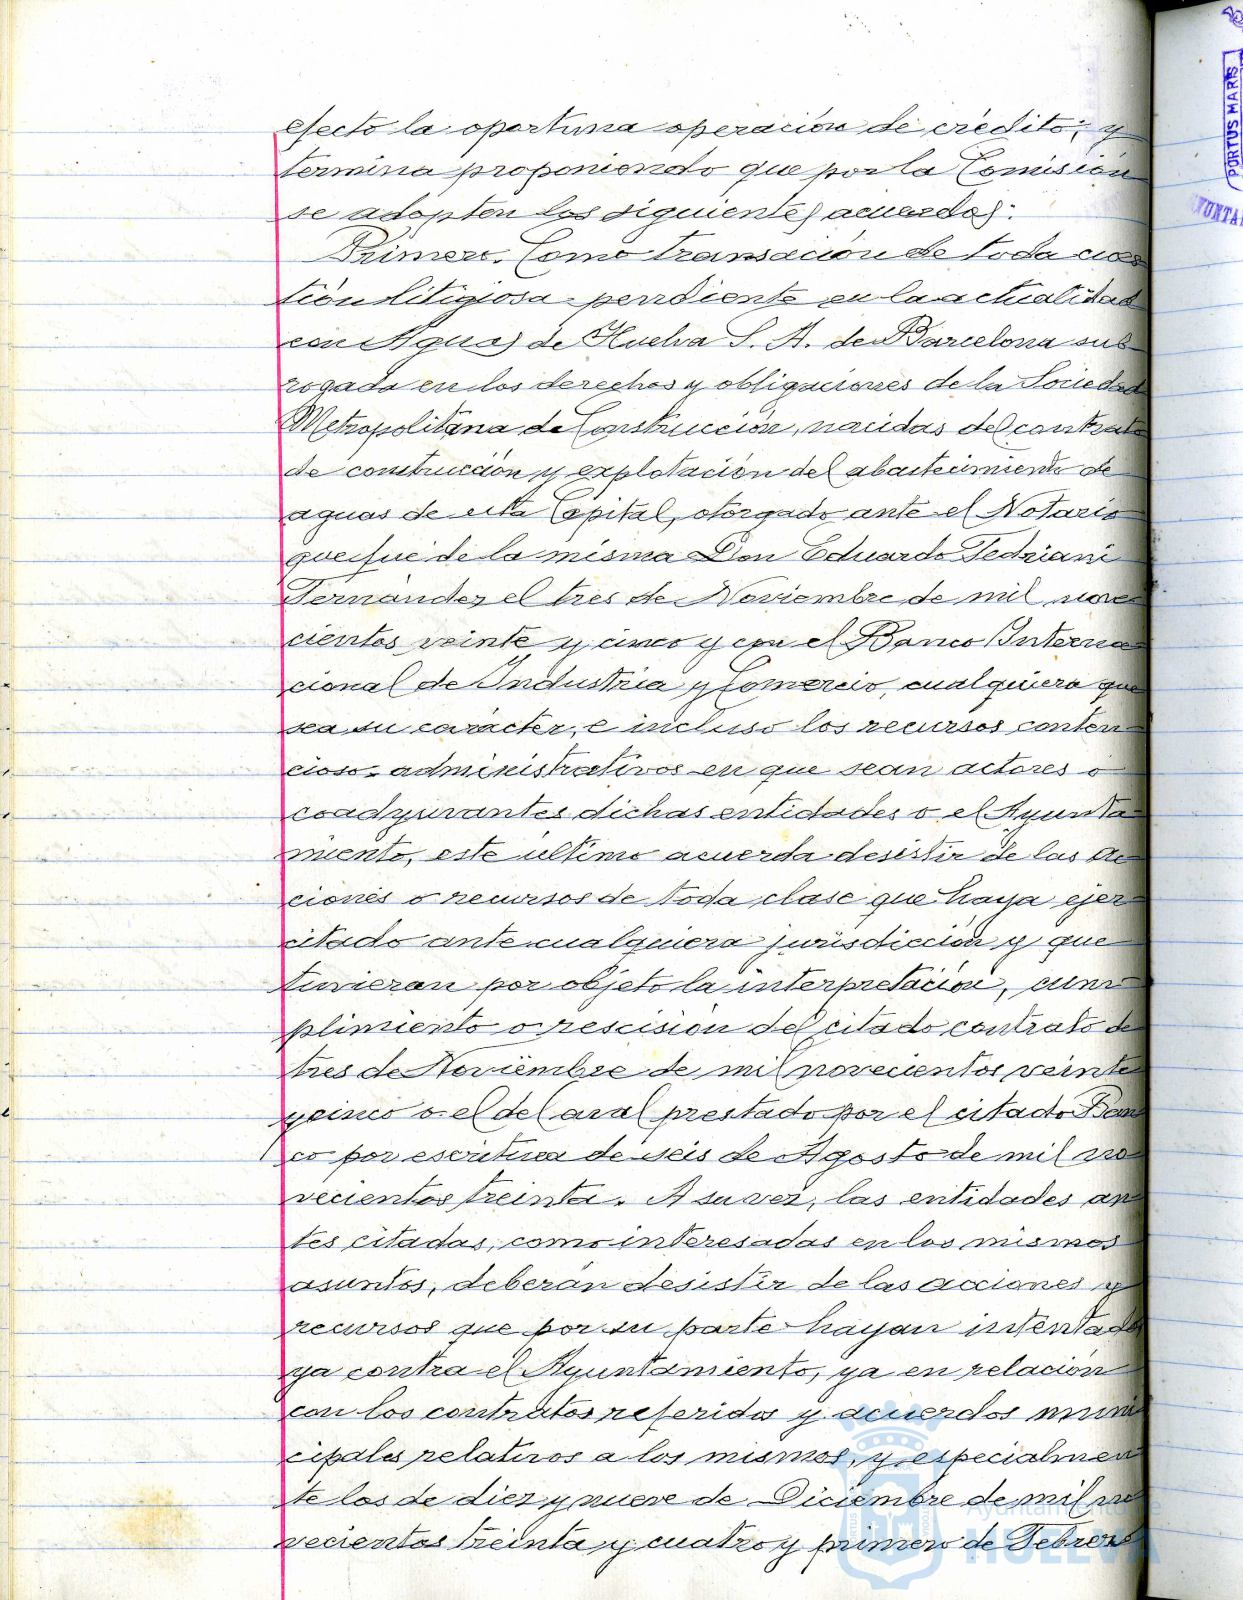 efecto la oportuna operación de crédito; y
termina proponiendo que por la Comisión
se adopten los siguientes acuerdos:
Primero. Como transación de toda cues
tión litigiosa pendiente en la actualidad
con Aguas de Huelva S. A. de Barcelona sub
rogada en los derechos y obligaciones de la Sociedad
Metropolitana de Construcción, nacidas del contrato
de construcción y explotación del abastecimiento de
aguas de esta Capital, otorgado ante el Notario
que fué de la misma Don Eduardo Fedriani
Fernández el tres de Noviembre de mil nove
cientos veinte y cinco y con el Banco Interna
cional de Industria y Comercio, cualquiera que
sea su carácter, e incluso los recursos conten
cioso-administrativos en que sean actores o
coadyuvantes dichas entidades o el Ayunta
miento, este último acuerda desistir de las ac
ciones o recursos de toda clase que haya ejer
citado ante cualquiera jurisdicción y que
tuvieran por objeto la interpretación, cum
plimiento o rescisión del citado contrato de
tres de Noviembre de mil novecientos veinte
y cinco o el del aval prestado por el citado Ban
co por escritura de seis de Agosto de mil no
vecientos treinta. A su vez, las entidades an
tes citadas, como interesadas en los mismos
asuntos, deberán desistir de las acciones y
recursos que por su parte hayan intentado
ya contra el Ayuntamiento, ya en relación
con los contratos referidos y acuerdos muni
cipales relativos a los mismos, y especialmen
te los de diez y nueve de Diciembre de mil no
vecientos treinta y cuatro y primero de Febrero
Ayuntamiento de
HUELVA
PORTUS MARIS